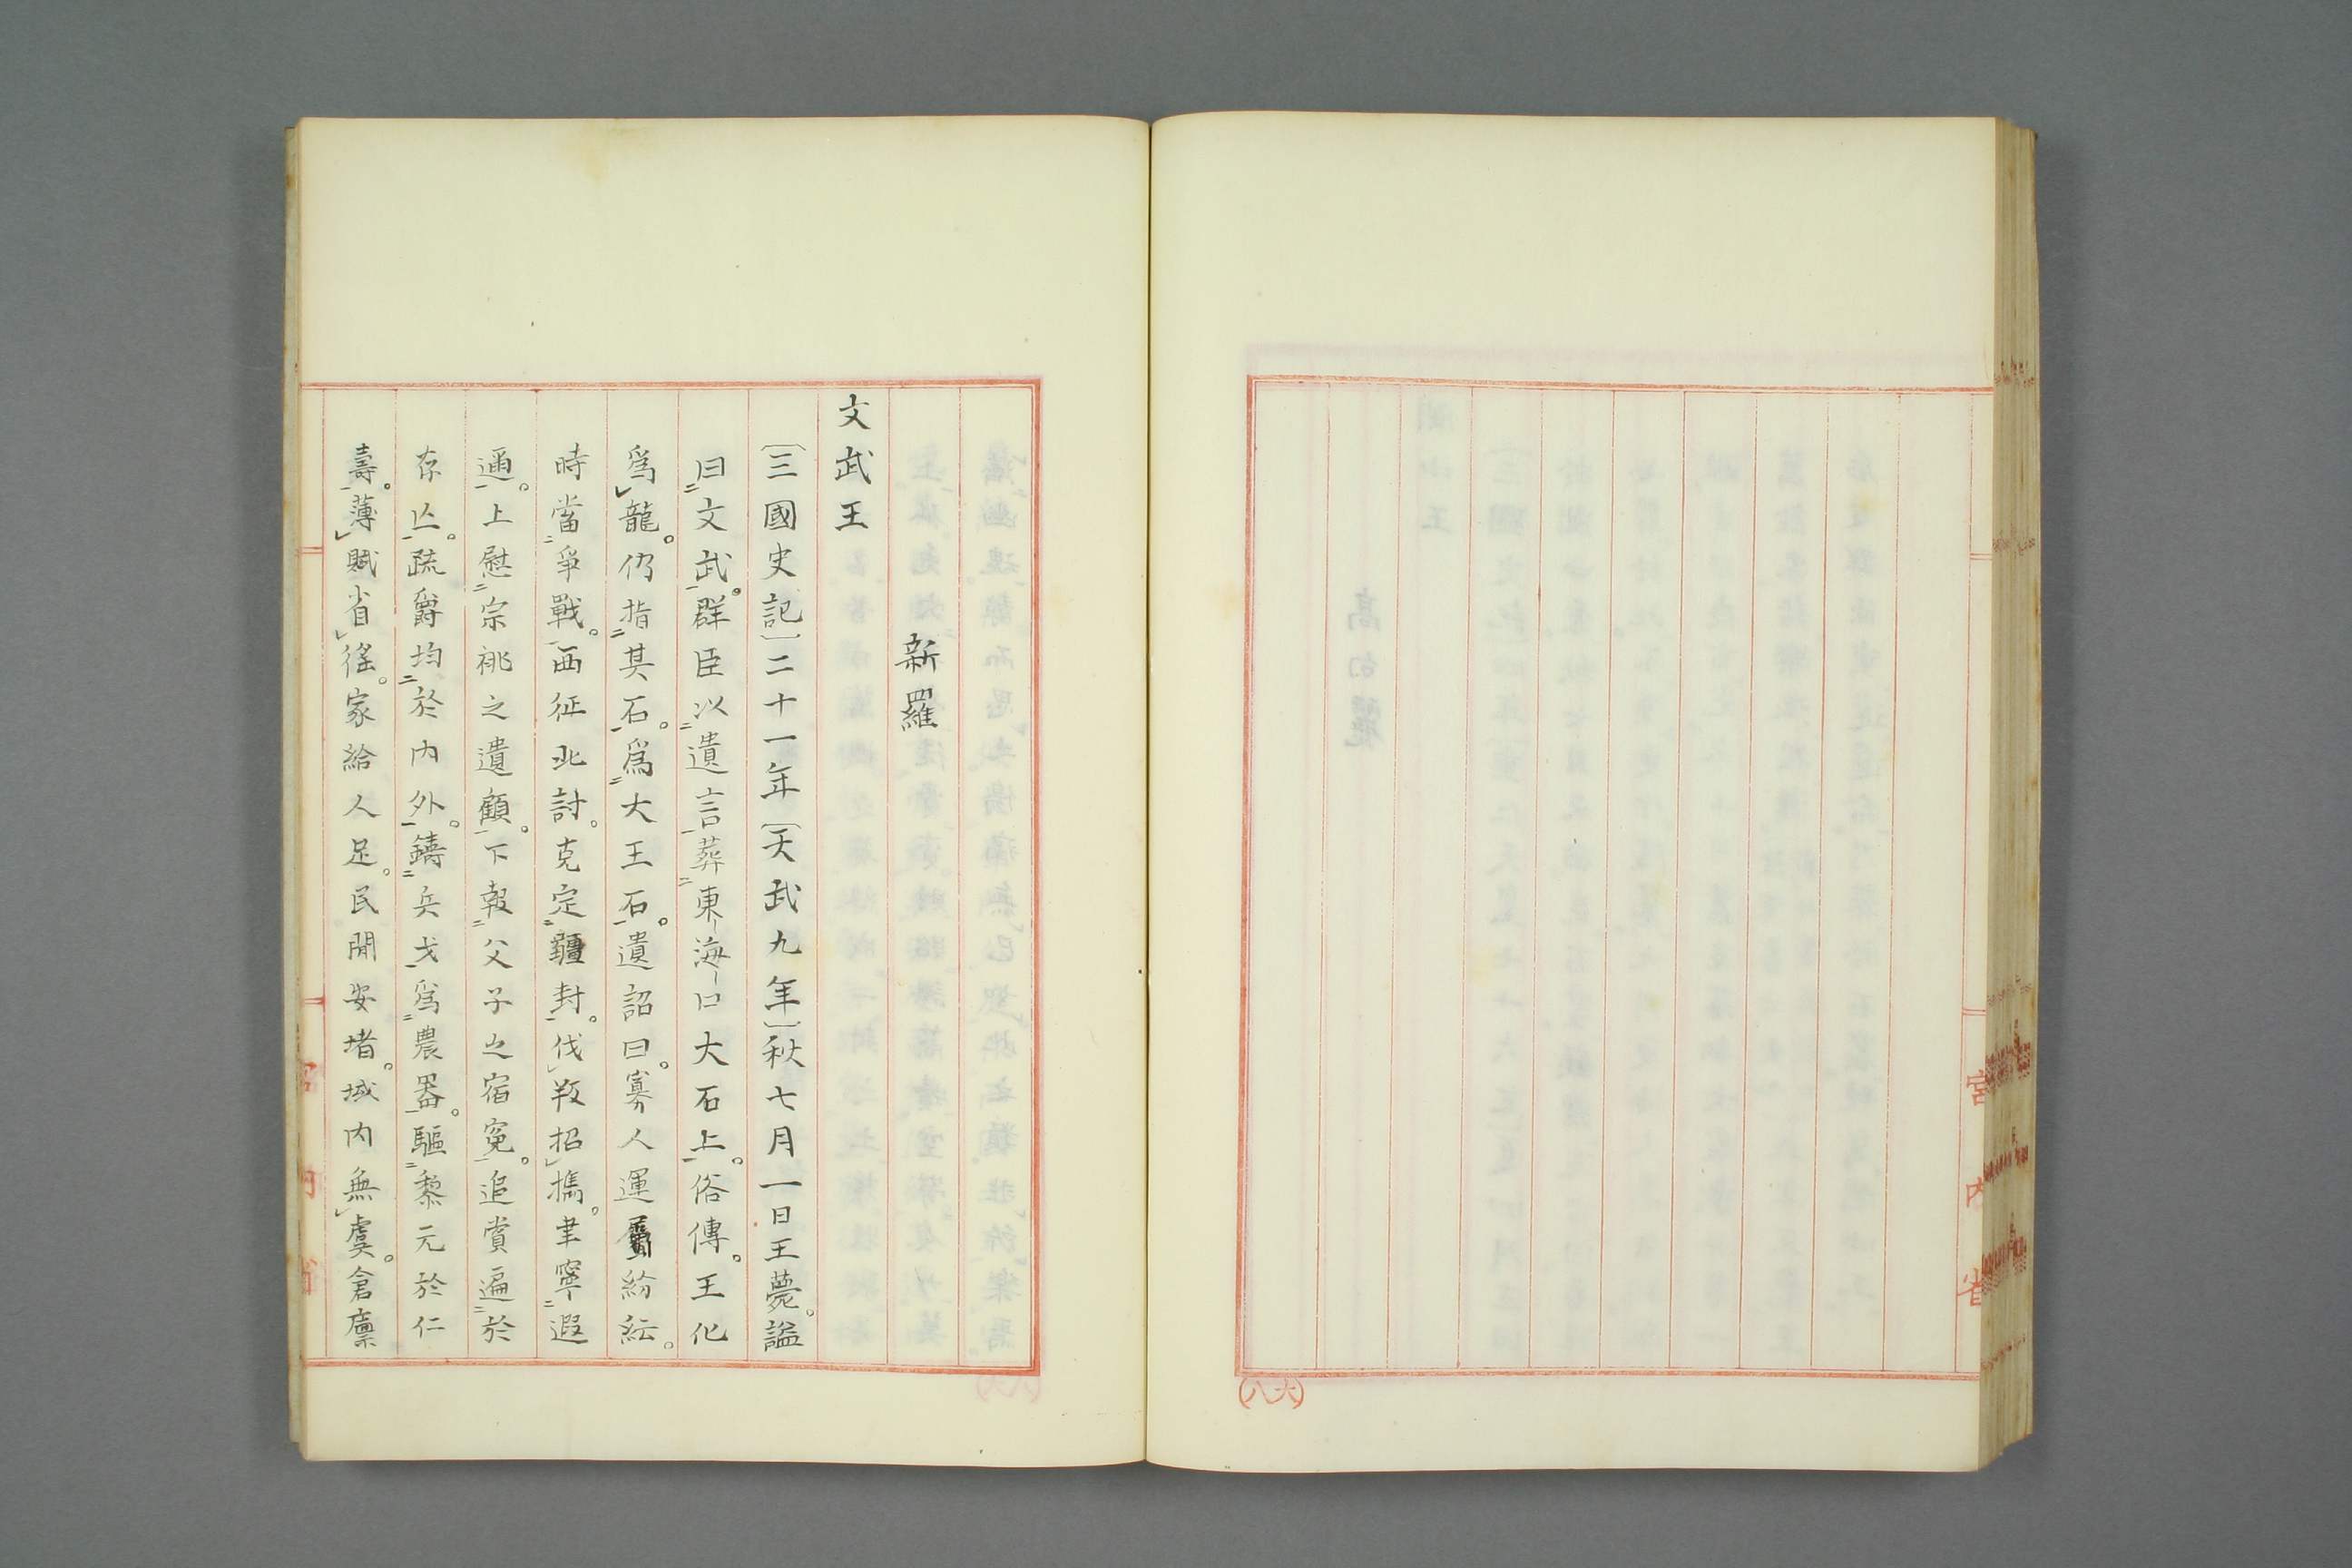 宮内省
(六八)
新羅
文武王
〔三國史記〕二十一年〔天武九年〕秋七月一日王薨。謚
曰文武。群臣以遺言葬東海口大石上。俗傳。王化
爲龍。仍指其石。爲大王石。遺詔曰。寡人運屬紛紜。
時當爭戰。西征北討。克定疆封。伐叛招携。聿寧遐
邇。上慰宗祧之遺顧。下報父子之宿寃。追賞遍於
存亾。疏爵均於内外。鑄兵戈爲農器。驅黎元於仁
壽。薄賦省徭。家給人足。民間安堵。域内無虞。倉廩